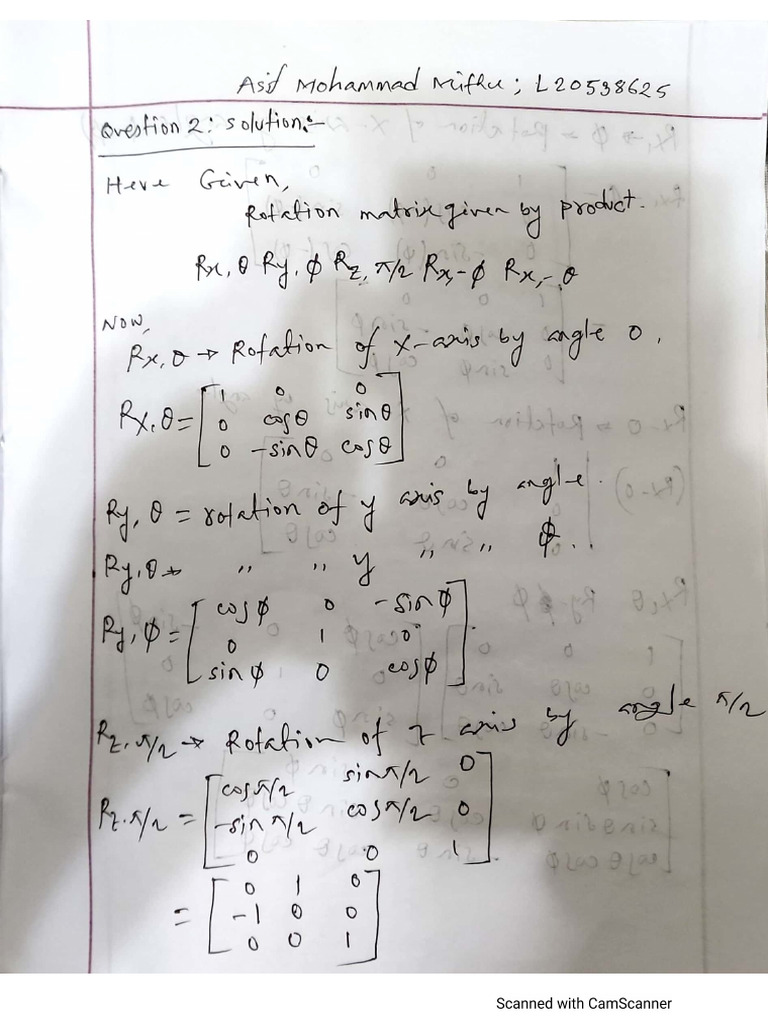 Asif Mohammad Mithu; L20538625
Question 2: Solution:-
Here Given,
Rotation matrix given by product.
Rx, θ Ry, ϕ Rz, π/2 Rx, -ϕ Rx, -θ
Now,
Rx, θ → Rotation of X-axis by angle θ.
Rx, θ = [1 0 0
0 cosθ sinθ
0 -sinθ cosθ]
Ry, θ = rotation of y axis by angle.
Ry, θ → " " y " " ϕ.
Ry, ϕ = [cosϕ 0 -sinϕ
0 1 0
sinϕ 0 cosϕ]
Rz, π/2 → Rotation of z axis by angle π/2
Rz, π/2 = [cosπ/2 sinπ/2 0
-sinπ/2 cosπ/2 0
0 0 1]
= [0 1 0
-1 0 0
0 0 1]
Scanned with CamScanner